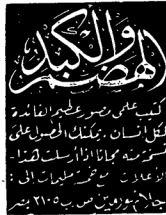 الهضم والكبد
كتيب علمى مصور عظيم الفائدة
لكل انسان . يمكنك الحصول على
نسخة منه مجانا اذا أرسلت هذا
الاعلان مع خمسة مليمات الى :
ص . ب ٢١٠٥ مصر